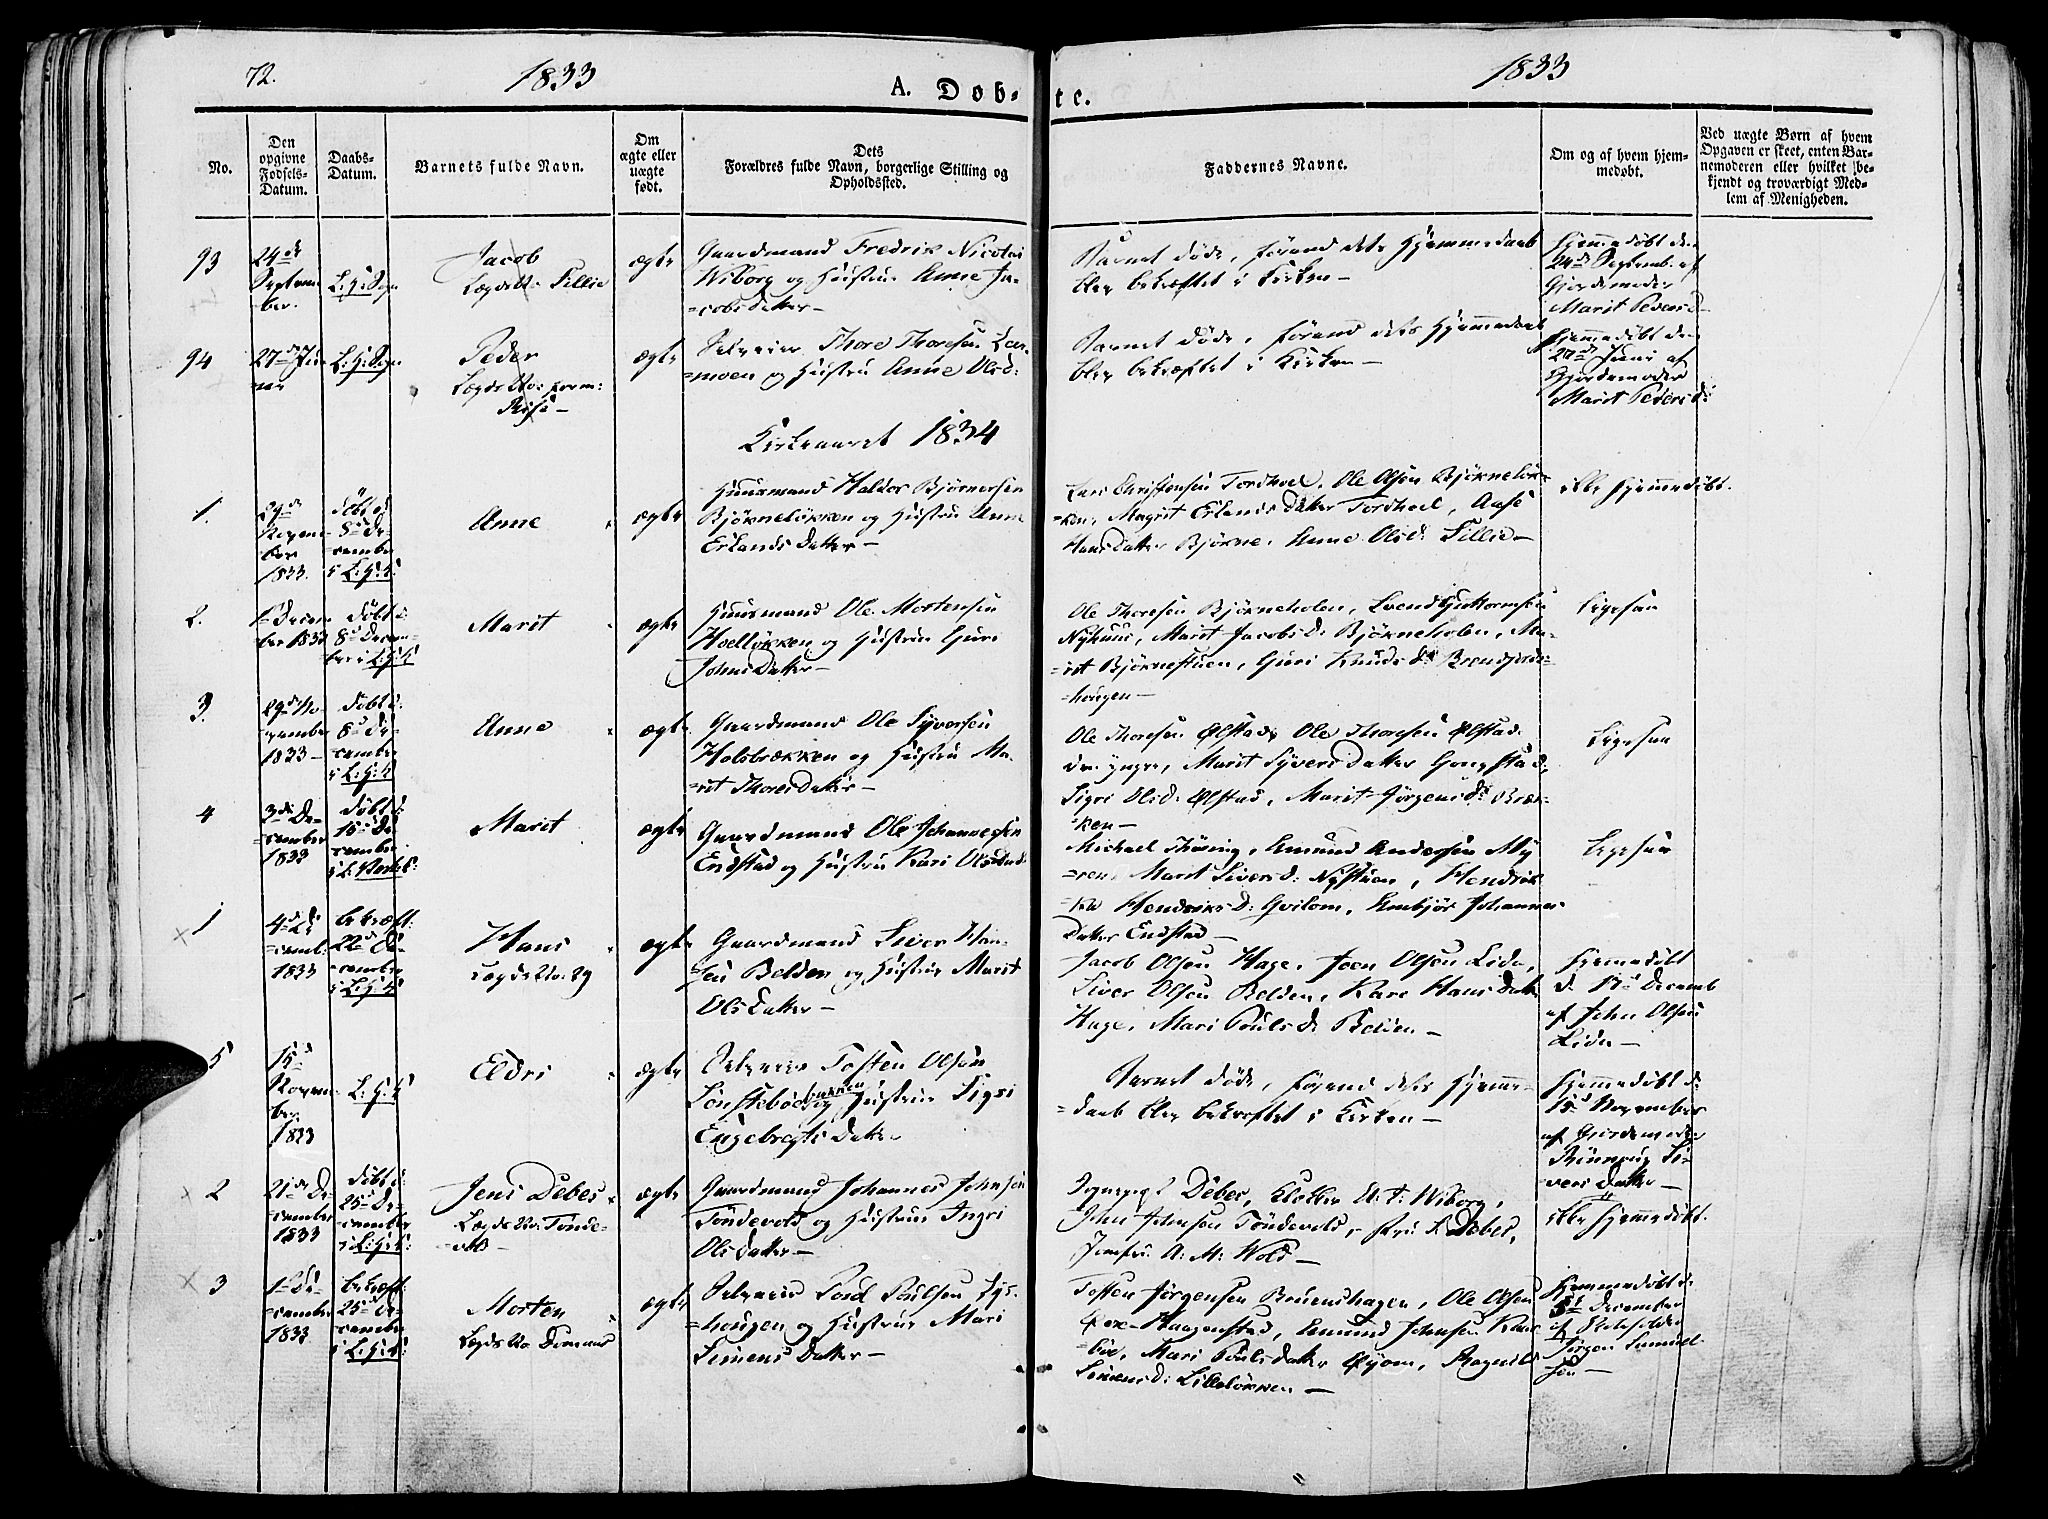 72.
1833
A. Døb-
te.
1833
No.
Den
opgivne
Fødsels-
Datum.
Daabs-
Datum.
Barnets fulde Navn.
Om
ægte eller
uægte
født.
Dets
Forældres fulde Navn, borgerlige Stilling og
Opholdssted.
Faddernes Navne.
Om og af hvem hjem-
medøbt.
Ved uægte Børn af hvem
Opgaven er skeet, enten Bar-
nemoderen eller hvilket be-
kjendt og troværdigt Med-
lem af Menigheden.
93
24de
Septem-
ber.
L: H: Sogn
Jacob
Lægds No: Lillie
ægte
Gaardmand Fredrik Nicolai
Wiborg og Hustrue Anne Ja-
=cobsDatter—
Barnet døde, førend dets Hjemmedaab
blev bekræftet i Kirken—
Hjemmedøbt den
24de Septemb. af
Gjordemoder
Marit Pedersd—
94
L: H: Sogn
Peder
ægte
Selveier Thore Thoresen
=moen og Hustru Anne Olsd:
Barnet døde, førend dets Hjemmedaab
blev bekræftet i Kirken—
Hjemmedøbt den
27de Juni af
Gjordemoder
Marit Pedersd:
Kirkeaaret 1834
1.
29de
Novem-
ber
1833.
døbt d:
8de De-
=cember
i L: H: K:
Anne
ægte
Huusmand Haldor Bjørnersen
Bjørneløkken og Hustrue Anne
ErlandsDatter—
Lars Christensen Tordhoel, Ole Olsen Bjørneløk-
=ken, Magrit ErlandsDatter Tordhoel, Aase
HansDatter Bjørne, Anne Olsd: Lillie—
ikke Hjemmedøbt.
2.
1ste Decem-
ber 1833
døbt d:
8de Decem-
ber i L: H: K:
Marit
ægte
Huusmand Ole Mortensen
Hoelløkken og Hustrue Guri
JohnsDatter—
Ole Thoresen Bjørneholen, Svend Guthormsen
Nyhuus, Marit Jacobsd: Bjørneholen, Ma-
=rit Bjørnestuen, Guri Knudsd:
=hougen—
Ligesaa
3.
29de No-
=vember
1833—
døbt d:
8de De-
=cember
i L: H: K:
Anne
ægte
Gaardmand Ole Syversen
Holsbrækken og Hustru Ma-
=rit ThoresDatter—
Ole Thoresen Ølstad, Ole Thoresen Ølstad
den yngre, Marit SyversDatter Gongstad,
Sigri Olsd: Ølstad, Marit Jørgensd: Bræk-
=ken—
Ligesaa
4
3de De-
=cember
1833
døbt d:
15de De-
cember
Marit
ægte
Gaardmand Ole Johannessen
Endstad og Hustru Kari
Michael Thøring, Amund Andersen My-
=ren, Marit Siversd: Nystuen, Hendrik-
=ka Hendriksd: Qvilom, Embjør Johannes-
Datter Endstad—
Ligesaa
1
4de De-
=cemb:
1833
bekræft:
22de De-
=cember
i L: H: K:
Hans
Lægds No: 29
ægte
Gaardmand Siver Han-
sen Belden og Hustrue Marit
OlsDatter—
Jacob Olsen Hage, Joen Olsen Lida,
Siver Olsen Belden, Kare HansDatter
Hage, Mari Poulsd: Belden—
Hjemmedøbt
d. 15de Decemb
af John Olsen
Lida—
5
15de
Novem-
ber
1833
L: H: K:
Eldri
ægte
Selveier Tosten Olsen
Sønstebødbakken og Hustrue Sigri
EngebregtsDatter
Barnet døde, førend dets Hjemme-
=daab blev bekræftet i Kirken—
Hjemmedøbt d:
15de November
af Gjordemoder
Rønnaug Si-
versDatter—
2
21de De-
=cember
1833
døbt d:
25de De-
=cember
i L: H: K:
Jens Debes
Lægds No: Tønde-
=vold—
ægte
Gaardmand Johannes Johnsen
Tøndevold og Hustrue Ingri
OlsDatter—
Sognepr Debes, Klokker A: F: Wiborg,
John Johnsen Tøndevold, Fru S. Debes,
Jomfru A: M: Wold—
ikke Hjemmedøbt.
3
1ste De-
cember
1833
bekræft:
25de De-
cember
i L: H: K:
Morten
ægte
Selveier Poul Poulsen Lys-
=hougen og Hustrue Mari
SimensDatter—
Tosten Jørgensen Bruunshagen, Ole Olsen
Øvre-Haagenstad, Amund Johnsen
=bøe, Mari PoulsDatter Øyom, Ragnild
Simensd: Lilleløkken—
Hjemmedøbt d:
5te December
af Skoleholder
Jørgen Samuel-
sen—